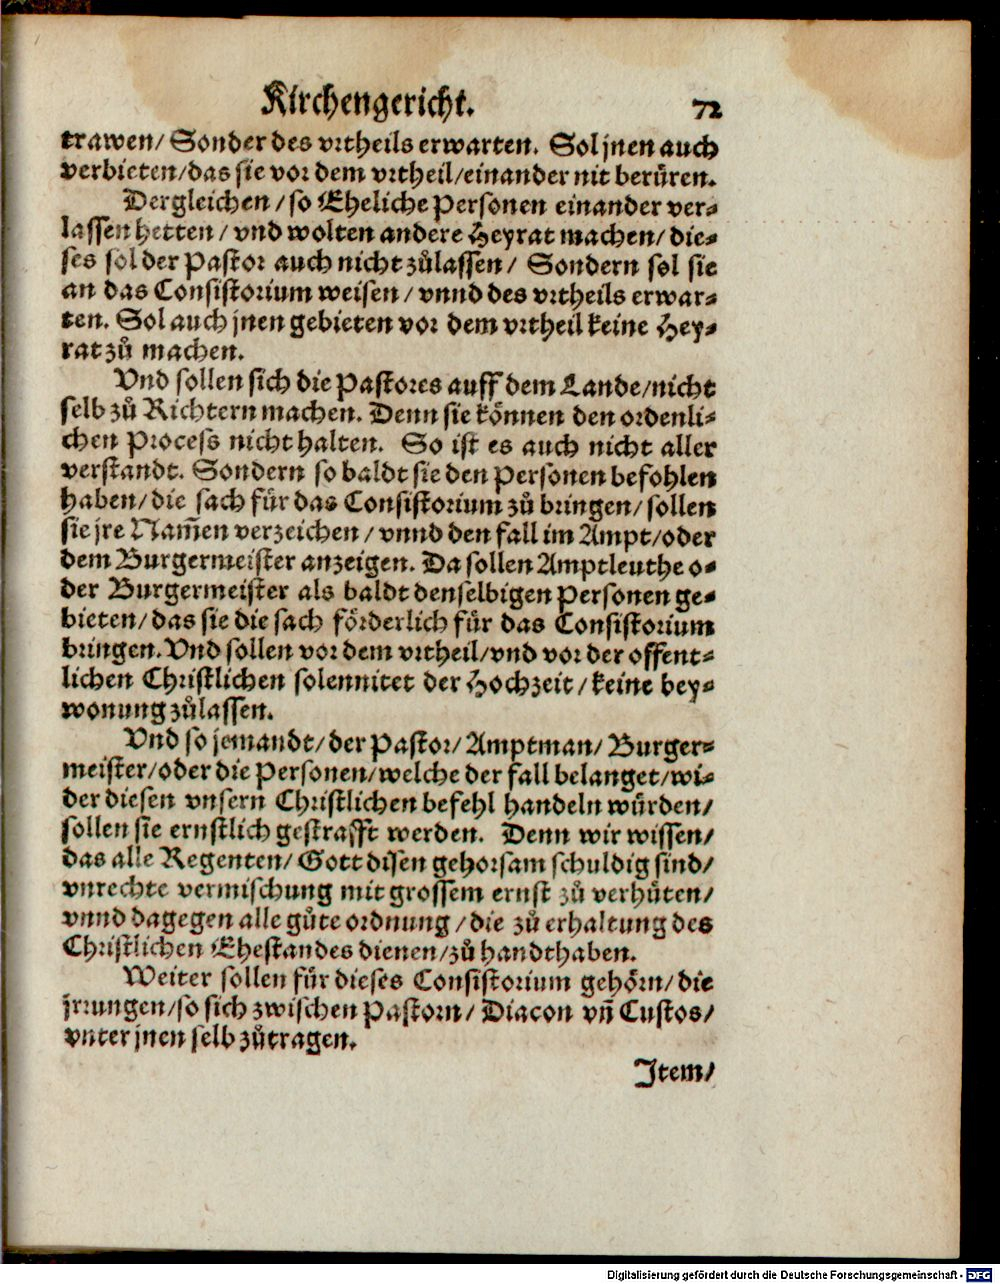 Kirchengericht. 72
trawen/ Sonder des vrtheils erwarten. Sol jnen auch
verbieten/das sie vor dem vrtheil/einander nit berüren.
Dergleichen/ so Eheliche Personen einander ver-
lassen hetten/ vnd wolten andere Heyrat machen/ die-
ses sol der Pastor auch nicht zůlassen/ Sondern sol sie
an das Consistorium weisen/ vnnd des vrtheils erwar-
ten. Sol auch jnen gebieten vor dem vrtheil keine Hey-
rat zů machen.
Vnd sollen sich die Pastores auff dem Lande/nicht
selb zů Richtern machen. Denn sie können den ordenli-
chen Process nicht halten. So ist es auch nicht aller
verstandt. Sondern so baldt sie den Personen befohlen
haben/die sach für das Consistorium zů bringen/ sollen
sie jre Nam̄en verzeichen/ vnnd den fall im Ampt/oder
dem Burgermeister anzeigen. Da sollen Amptleuthe o-
der Burgermeister als baldt denselbigen Personen ge-
bieten/das sie die sach förderlich für das Consistorium
bringen. Vnd sollen vor dem vrtheil/vnd vor der offent-
lichen Christlichen solennitet der Hochzeit/ keine bey-
wonung zůlassen.
Vnd so jemandt/der Pastor/ Amptman/ Burger-
meister/oder die Personen/welche der fall belanget/wi-
der diesen vnsern Christlichen befehl handeln würden/
sollen sie ernstlich gestrafft werden. Denn wir wissen/
das alle Regenten/ Gott disen gehorsam schuldig sind/
vnrechte vermischung mit grossem ernst zů verhüten/
vnnd dagegen alle gůte ordnung/die zů erhaltung des
Christlichen Ehestandes dienen/zů handthaben.
Weiter sollen für dieses Consistorium gehörn/die
jrrungen/so sich zwischen Pastorn/ Diacon vn̄ Custos/
vnter jnen selb zůtragen.
Item/
Digitalisierung gefördert durch die Deutsche Forschungsgemeinschaft - DFG